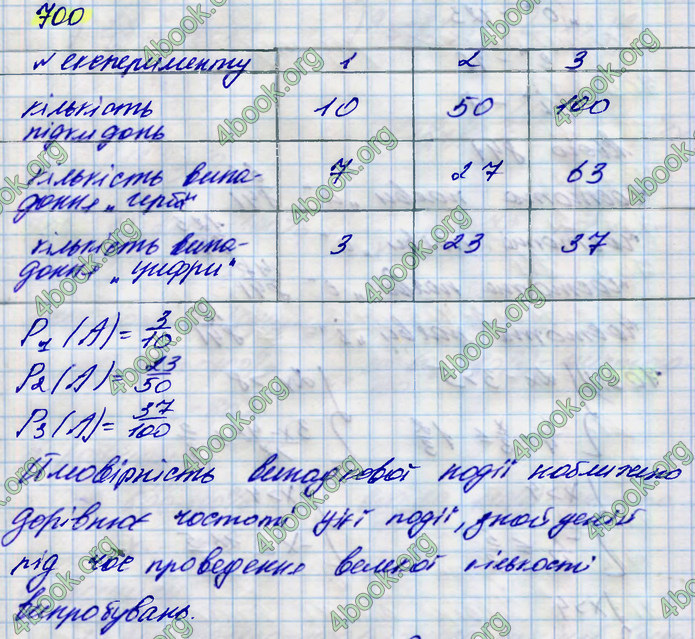 700
№ експерименту 1 2 3
кількість 10 50 100
підкидань
кількість випа- 7 27 63
дання „герб"
кількість випа- 3 23 37
дання „цифри"
P₁(A) = 3/10
P₂(A) = 23/50
P₃(A) = 37/100
Ймовірність випадкової події наближено
дорівнює частоті цієї події, знайденій
під час проведення великої кількості
випробувань.
4book.org